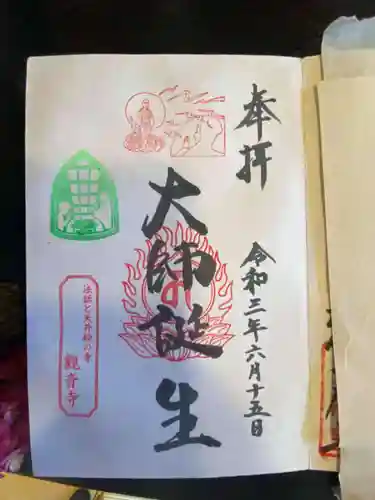 奉拝
令和三年六月十五日
大師誕生
法話と天井絵の寺
観音寺